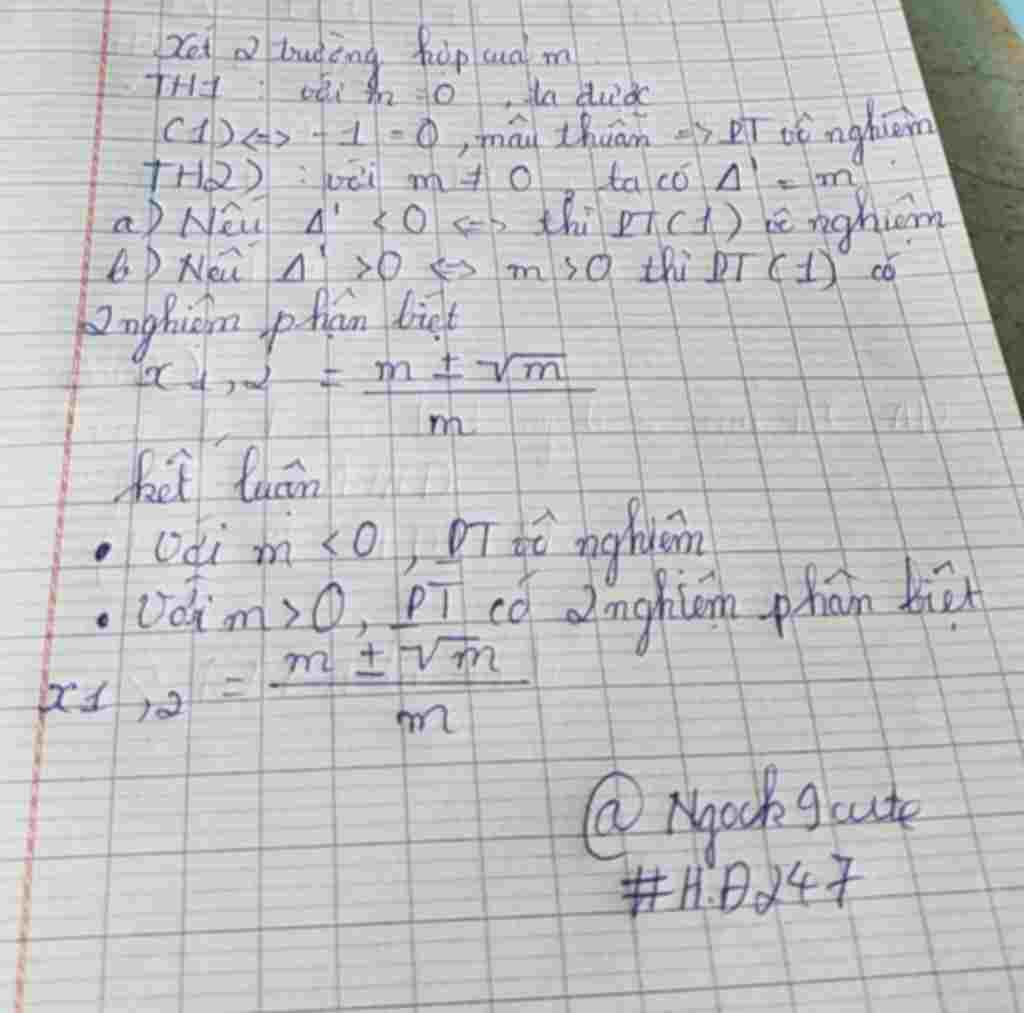 Xét 2 trường hợp của m
TH1 : với m = 0 , ta được
(1) <=> - 1 = 0 , mâu thuẫn => PT vô nghiệm
TH2) : với m ≠ 0 ta có Δ' = m
a) Nếu Δ' < 0 <=> thì PT (1) vô nghiệm
b) Nếu Δ' > 0 <=> m > 0 thì PT (1) có
2 nghiệm phận biệt
x 1 , 2 = (m ± √m) / m
kết luân
• Với m < 0 , PT vô nghiệm
• Với m > 0 , PT có 2 nghiệm phân biệt
x1 , 2 = (m ± √m) / m
@ Ngock9cute
#H.Đ247